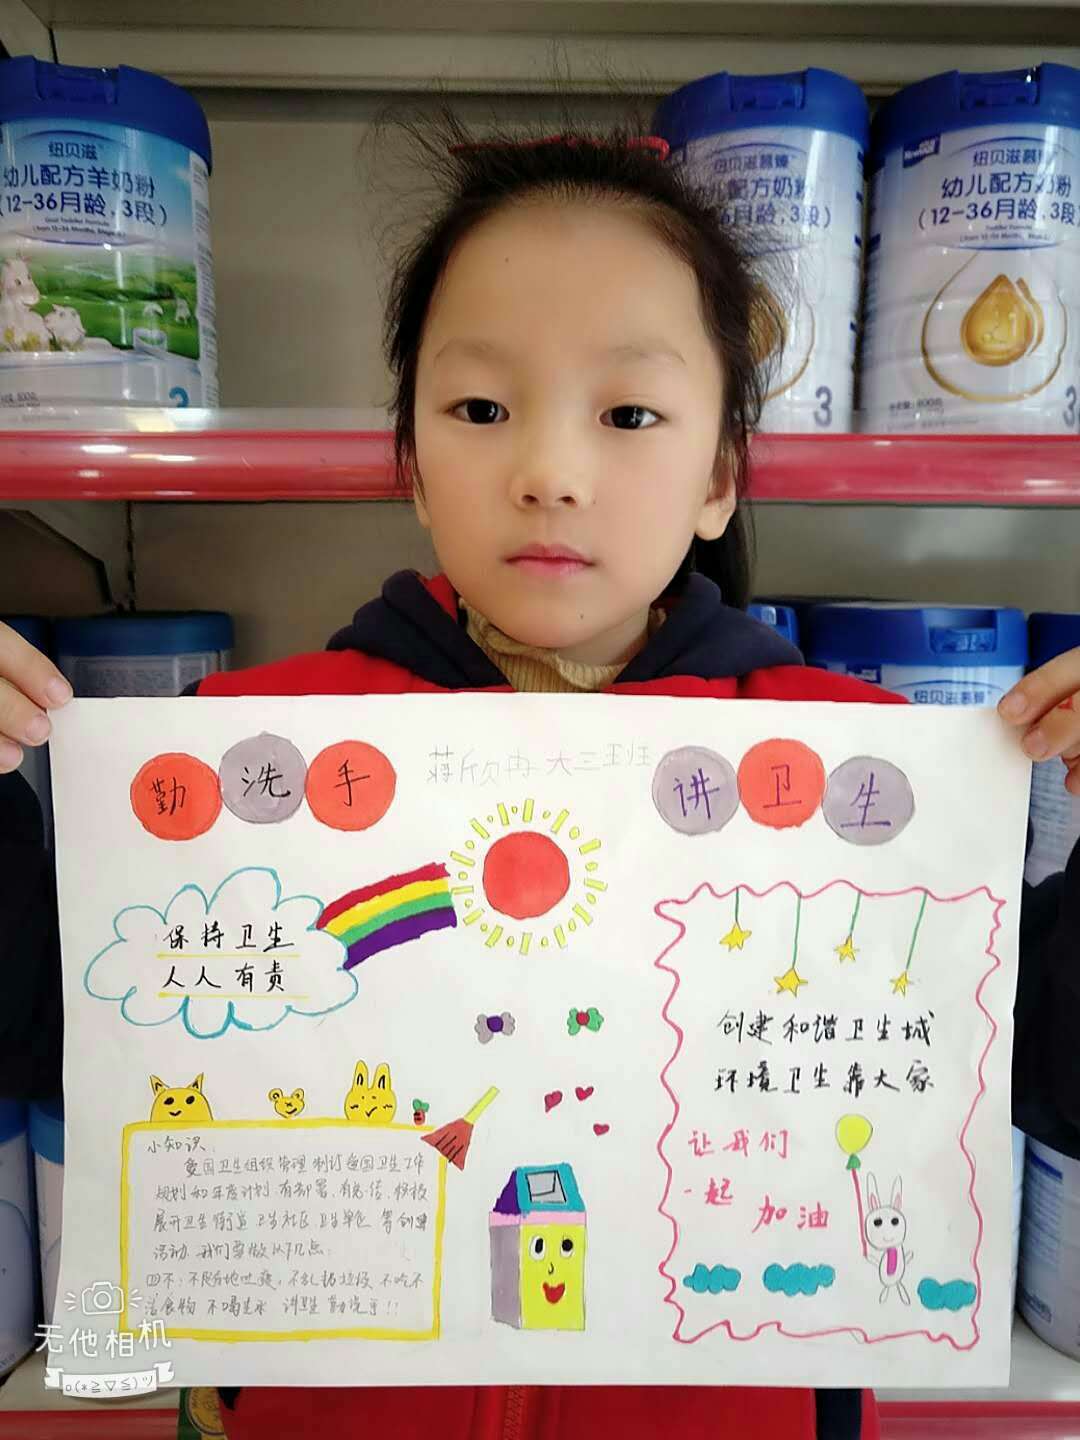 纽贝滋
幼儿配方羊奶粉
(12-36月龄,3段)
3
纽贝滋慕臻
幼儿配方奶粉
6月龄,3段)
3
纽贝滋慕臻
幼儿配方奶粉
(12-36月龄,3段)
3
纽贝滋慕臻
勤洗手
蒋欣冉大三班
讲卫生
保持卫生
人人有责
创建和谐卫生城
环境卫生靠大家
让我们
一起
加油
小知识:
爱国卫生组织管理 制订爱国卫生工作
规划和年度计划.有部署.有总结.积极
展开卫生街道 卫生社区 卫生单位 等创建
活动.我们要做以下几点:
四不:不随地吐痰,不乱扔垃圾 不吃不
洁食物 不喝生水 讲卫生 勤洗手!!
无他相机
o(*≧▽≦)ツ